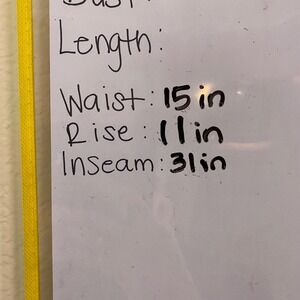 Length:
Waist: 15in
Rise: 11in
Inseam: 31in